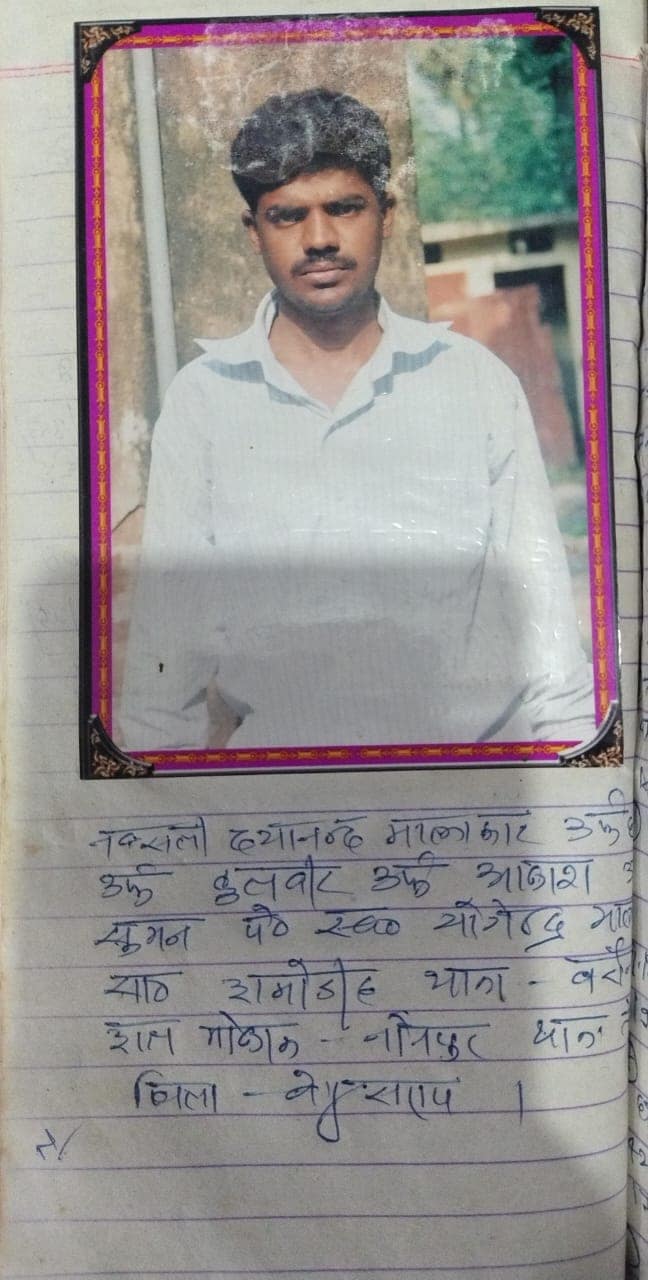 नक्सली दयानन्द मालाकार उर्फ
उर्फ कुलवीर उर्फ आकाश
सुमन पे० स्व० योगेन्द्र
सा० थाना -
हाल मोकाम - थाना
जिला - बेगूसराय ।